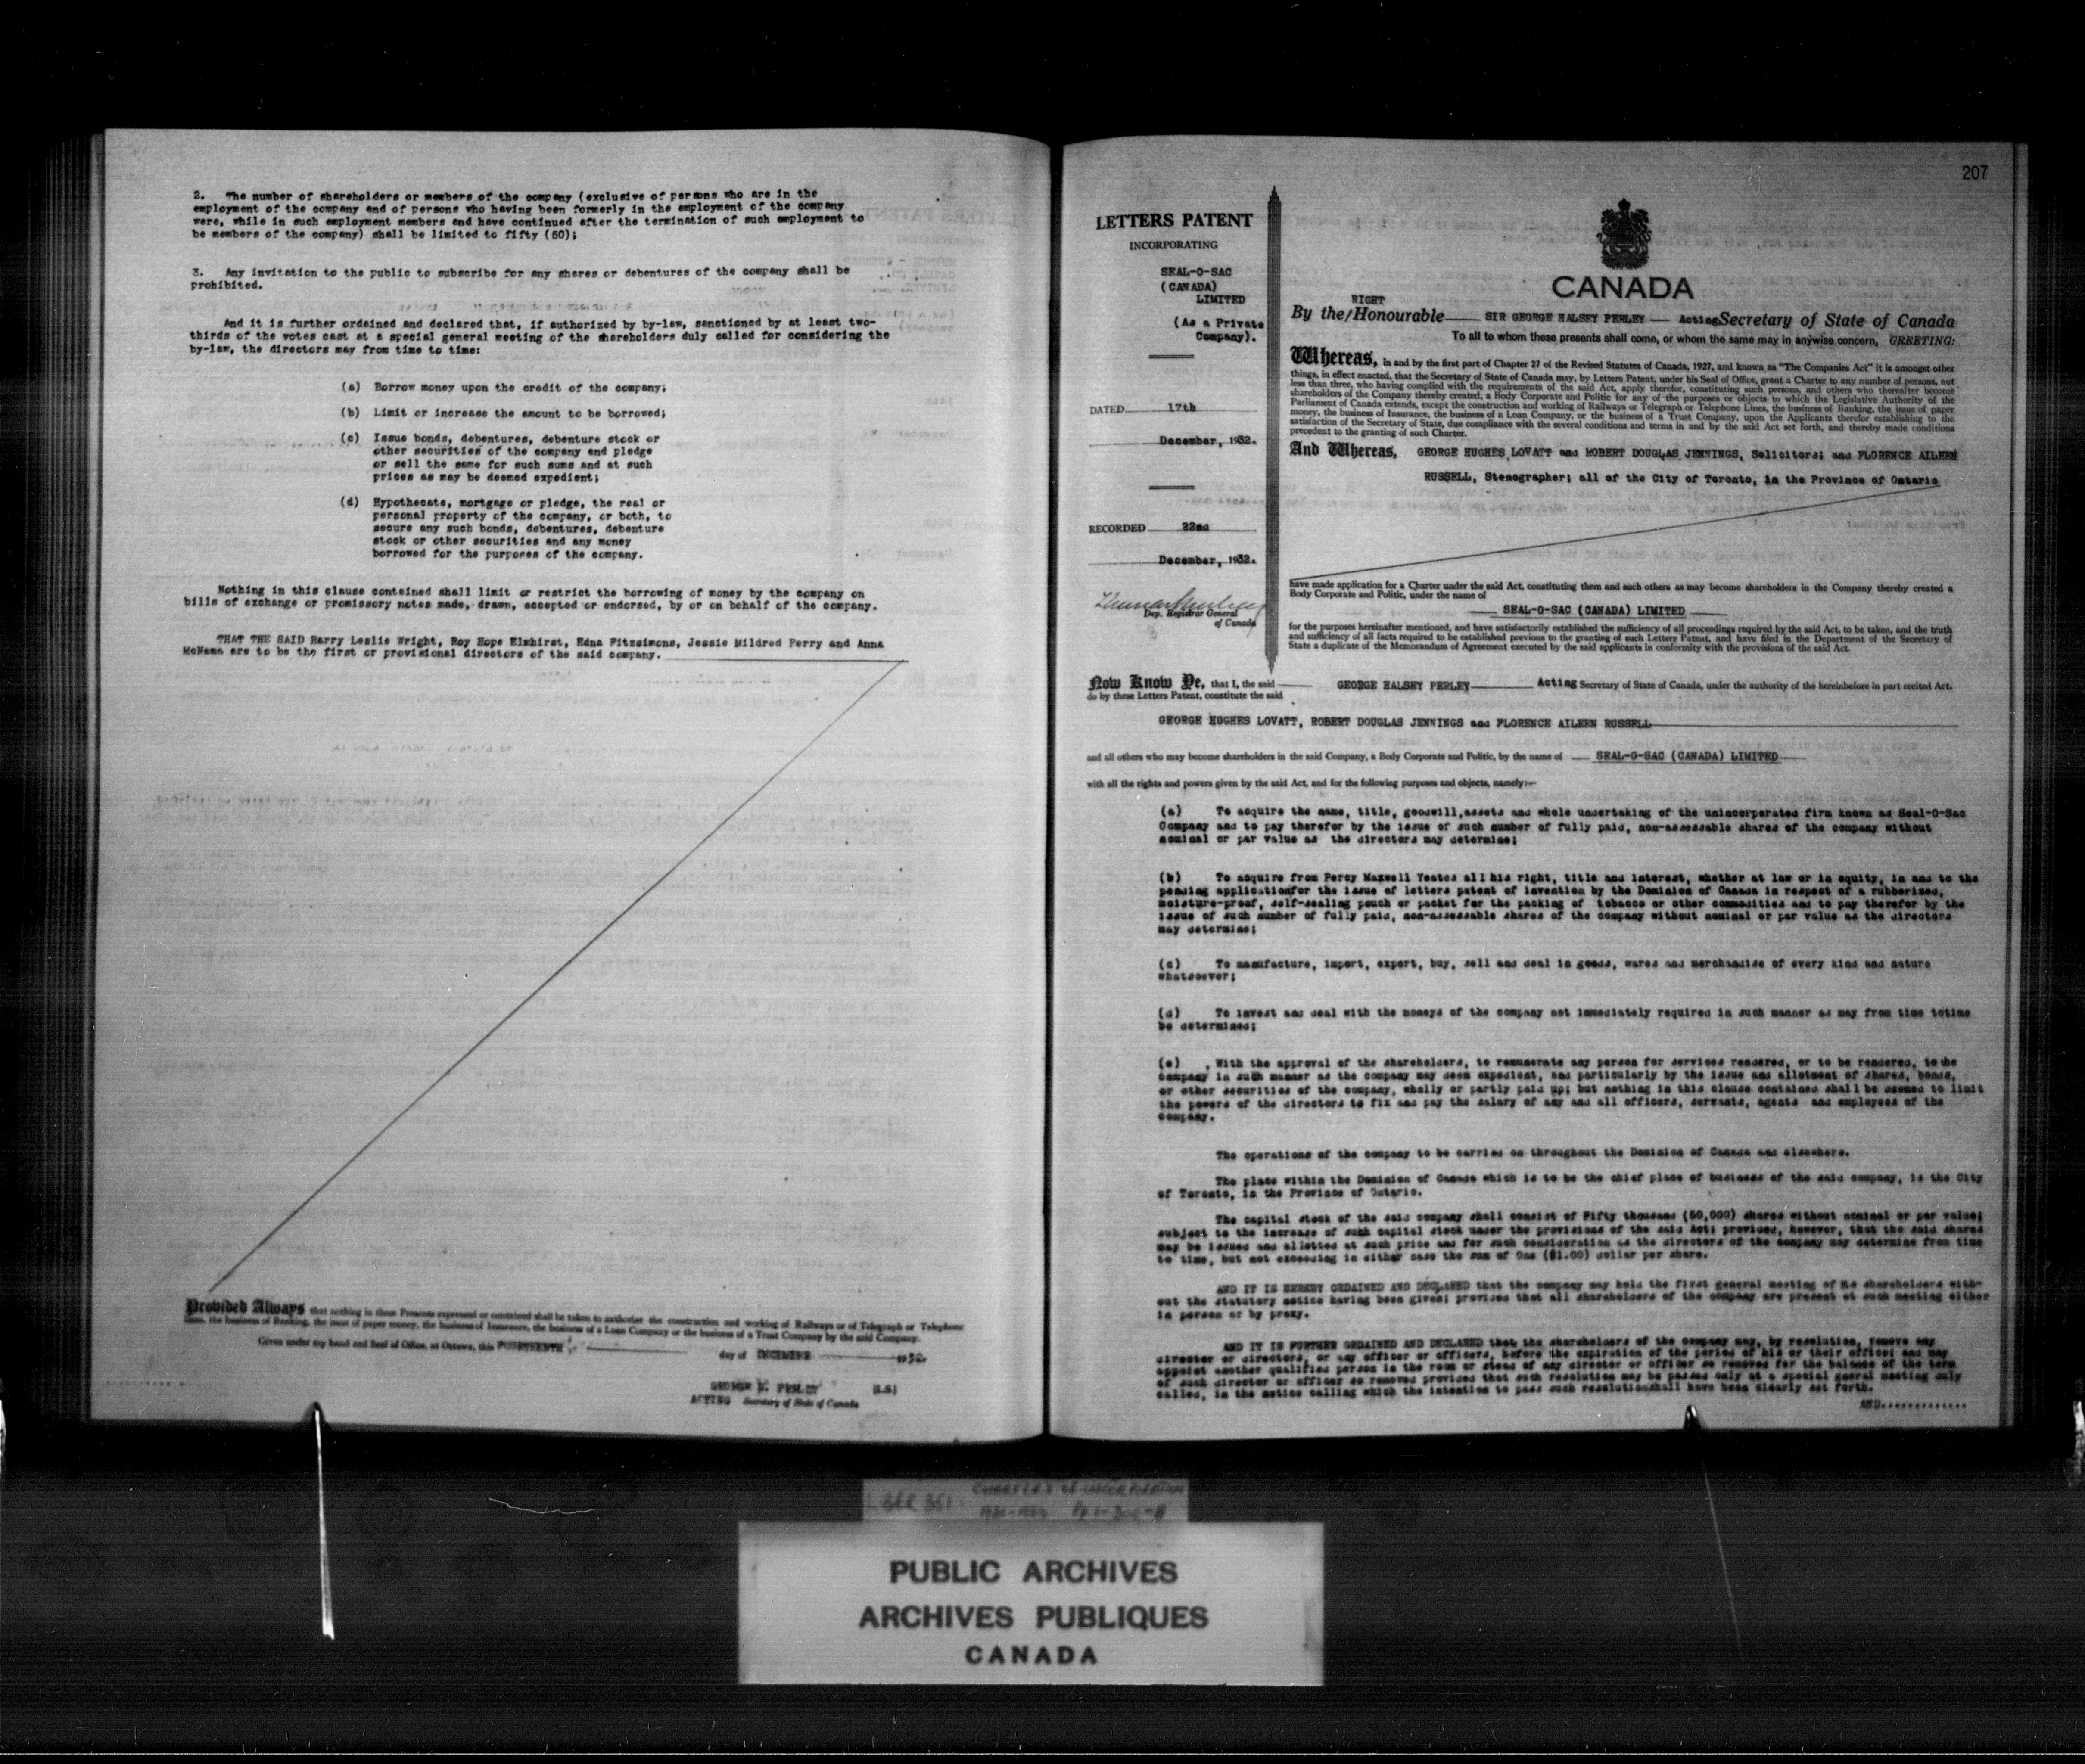 2. The number of shareholders or members of the company (exclusive of persons who are in the
employment of the company and of persons who having been formerly in the employment of the company
were, while in such employment members and have continued after the termination of such employment to
be members of the company) shall be limited to fifty (50);
3. Any invitation to the public to subscribe for any shares or debentures of the company shall be
prohibited.
And it is further ordained and declared that, if authorized by by-law, sanctioned by at least two-
thirds of the votes cast at a special general meeting of the shareholders duly called for considering the
by-law, the directors may from time to time:
(a) Borrow money upon the credit of the company;
(b) Limit or increase the amount to be borrowed;
(c) Issue bonds, debentures, debenture stock or
other securities of the company and pledge
or sell the same for such sums and at such
prices as may be deemed expedient;
(d) Hypothecate, mortgage or pledge, the real or
personal property of the company, or both, to
secure any such bonds, debentures, debenture
stock or other securities and any money
borrowed for the purposes of the company.
Nothing in this clause contained shall limit or restrict the borrowing of money by the company on
bills of exchange or promissory notes made, drawn, accepted or endorsed, by or on behalf of the company.
THAT THE SAID Harry Leslie Wright, Roy Hope Elmhirst, Edna Fitzsimons, Jessie Mildred Perry and Anna
McNama are to be the first or provisional directors of the said company.
Provided Always that nothing in these Presents expressed or contained shall be taken to authorize the construction and working of Railways or of Telegraph or Telephone
lines, the business of Banking, the issue of paper money, the business of Insurance, the business of a Loan Company or the business of a Trust Company by the said Company.
Given under my hand and Seal of Office, at Ottawa, this FOURTEENTH day of DECEMBER 1932.
GEORGE H. PERLEY (L.S.)
ACTING Secretary of State of Canada
207
LETTERS PATENT
INCORPORATING
SEAL-O-SAC
(CANADA)
LIMITED
(As a Private
Company).
DATED 17th
December, 1932.
RECORDED 22nd
December, 1932.
Dep. Registrar General
of Canada
CANADA
RIGHT
By the/Honourable SIR GEORGE HALSEY PERLEY Acting Secretary of State of Canada
To all to whom these presents shall come, or whom the same may in anywise concern, GREETING:
Whereas, in and by the first part of Chapter 27 of the Revised Statutes of Canada, 1927, and known as "The Companies Act" it is amongst other
things, in effect enacted, that the Secretary of State of Canada may, by Letters Patent, under his Seal of Office, grant a Charter to any number of persons, not
less than three, who having complied with the requirements of the said Act, apply therefor, constituting such persons, and others who thereafter become
shareholders of the Company thereby created, a Body Corporate and Politic for any of the purposes or objects to which the Legislative Authority of the
Parliament of Canada extends, except the construction and working of Railways or Telegraph or Telephone Lines, the business of Banking, the issue of paper
money, the business of Insurance, the business of a Loan Company, or the business of a Trust Company, upon the Applicants therefor establishing to the
satisfaction of the Secretary of State, due compliance with the several conditions and terms in and by the said Act set forth, and thereby made conditions
precedent to the granting of such Charter.
And Whereas, GEORGE HUGHES LOVATT and ROBERT DOUGLAS JENNINGS, Solicitors; and FLORENCE AILEEN
RUSSELL, Stenographer; all of the City of Toronto, in the Province of Ontario
have made application for a Charter under the said Act, constituting them and such others as may become shareholders in the Company thereby created a
Body Corporate and Politic, under the name of
SEAL-O-SAC (CANADA) LIMITED
for the purposes hereinafter mentioned, and have satisfactorily established the sufficiency of all proceedings required by the said Act, to be taken, and the truth
and sufficiency of all facts required to be established previous to the granting of such Letters Patent, and have filed in the Department of the Secretary of
State a duplicate of the Memorandum of Agreement executed by the said applicants in conformity with the provisions of the said Act.
Now Know Ye, that I, the said GEORGE HALSEY PERLEY Acting Secretary of State of Canada, under the authority of the hereinbefore in part recited Act,
do by these Letters Patent, constitute the said
GEORGE HUGHES LOVATT, ROBERT DOUGLAS JENNINGS and FLORENCE AILEEN RUSSELL
and all others who may become shareholders in the said Company, a Body Corporate and Politic, by the name of SEAL-O-SAC (CANADA) LIMITED
with all the rights and powers given by the said Act, and for the following purposes and objects, namely:—
(a) To acquire the name, title, goodwill,assets and whole undertaking of the unincorporated firm known as Seal-O-Sac
Company and to pay therefor by the issue of such number of fully paid, non-assessable shares of the company without
nominal or par value as the directors may determine;
(b) To acquire from Percy Maxwell Yeates all his right, title and interest, whether at law or in equity, in and to the
pending applicationfor the issue of letters patent of invention by the Dominion of Canada in respect of a rubberized,
moisture-proof, self-sealing pouch or packet for the packing of tobacco or other commodities and to pay therefor by the
issue of such number of fully paid, non-assessable shares of the company without nominal or par value as the directors
may determine;
(c) To manufacture, import, export, buy, sell and deal in goods, wares and merchandise of every kind and nature
whatsoever;
(d) To invest and deal with the moneys of the company not immediately required in such manner as may from time totime
be determined;
(e) With the approval of the shareholders, to remunerate any person for services rendered, or to be rendered, to the
company in such manner as the company may deem expedient, and particularly by the issue and allotment of shares, bonds,
or other securities of the company, wholly or partly paid up; but nothing in this clause contained shall be deemed to limit
the powers of the directors to fix and pay the salary of any and all officers, servants, agents and employees of the
company.
The operations of the company to be carried on throughout the Dominion of Canada and elsewhere.
The place within the Dominion of Canada which is to be the chief place of business of the said company, is the City
of Toronto, in the Province of Ontario.
The capital stock of the said company shall consist of Fifty thousand (50,000) shares without nominal or par value;
subject to the increase of such capital stock under the provisions of the said Act; provided, however, that the said shares
may be issued and allotted at such price and for such consideration as the directors of the company may determine from time
to time, but not exceeding in either case the sum of One ($1.00) dollar per share.
AND IT IS HEREBY ORDAINED AND DECLARED that the company may hold the first general meeting of its shareholders with-
out the statutory notice having been given; provided that all shareholders of the company are present at such meeting either
in person or by proxy.
AND IT IS FURTHER ORDAINED AND DECLARED that, the shareholders of the company may, by resolution, remove any
director or directors, or any officer or officers, before the expiration of the period of his or their office; and may
appoint another qualified person in the room or stead of any director or officer so removed for the balance of the term
of such director or officer so removed provided that such resolution may be passed only at a special general meeting duly
called, in the notice calling which the intention to pass such resolutionshall have been clearly set forth.
AND.............
LIBER 351 CHARTERS OF INCORPORATION
PUBLIC ARCHIVES
ARCHIVES PUBLIQUES
CANADA